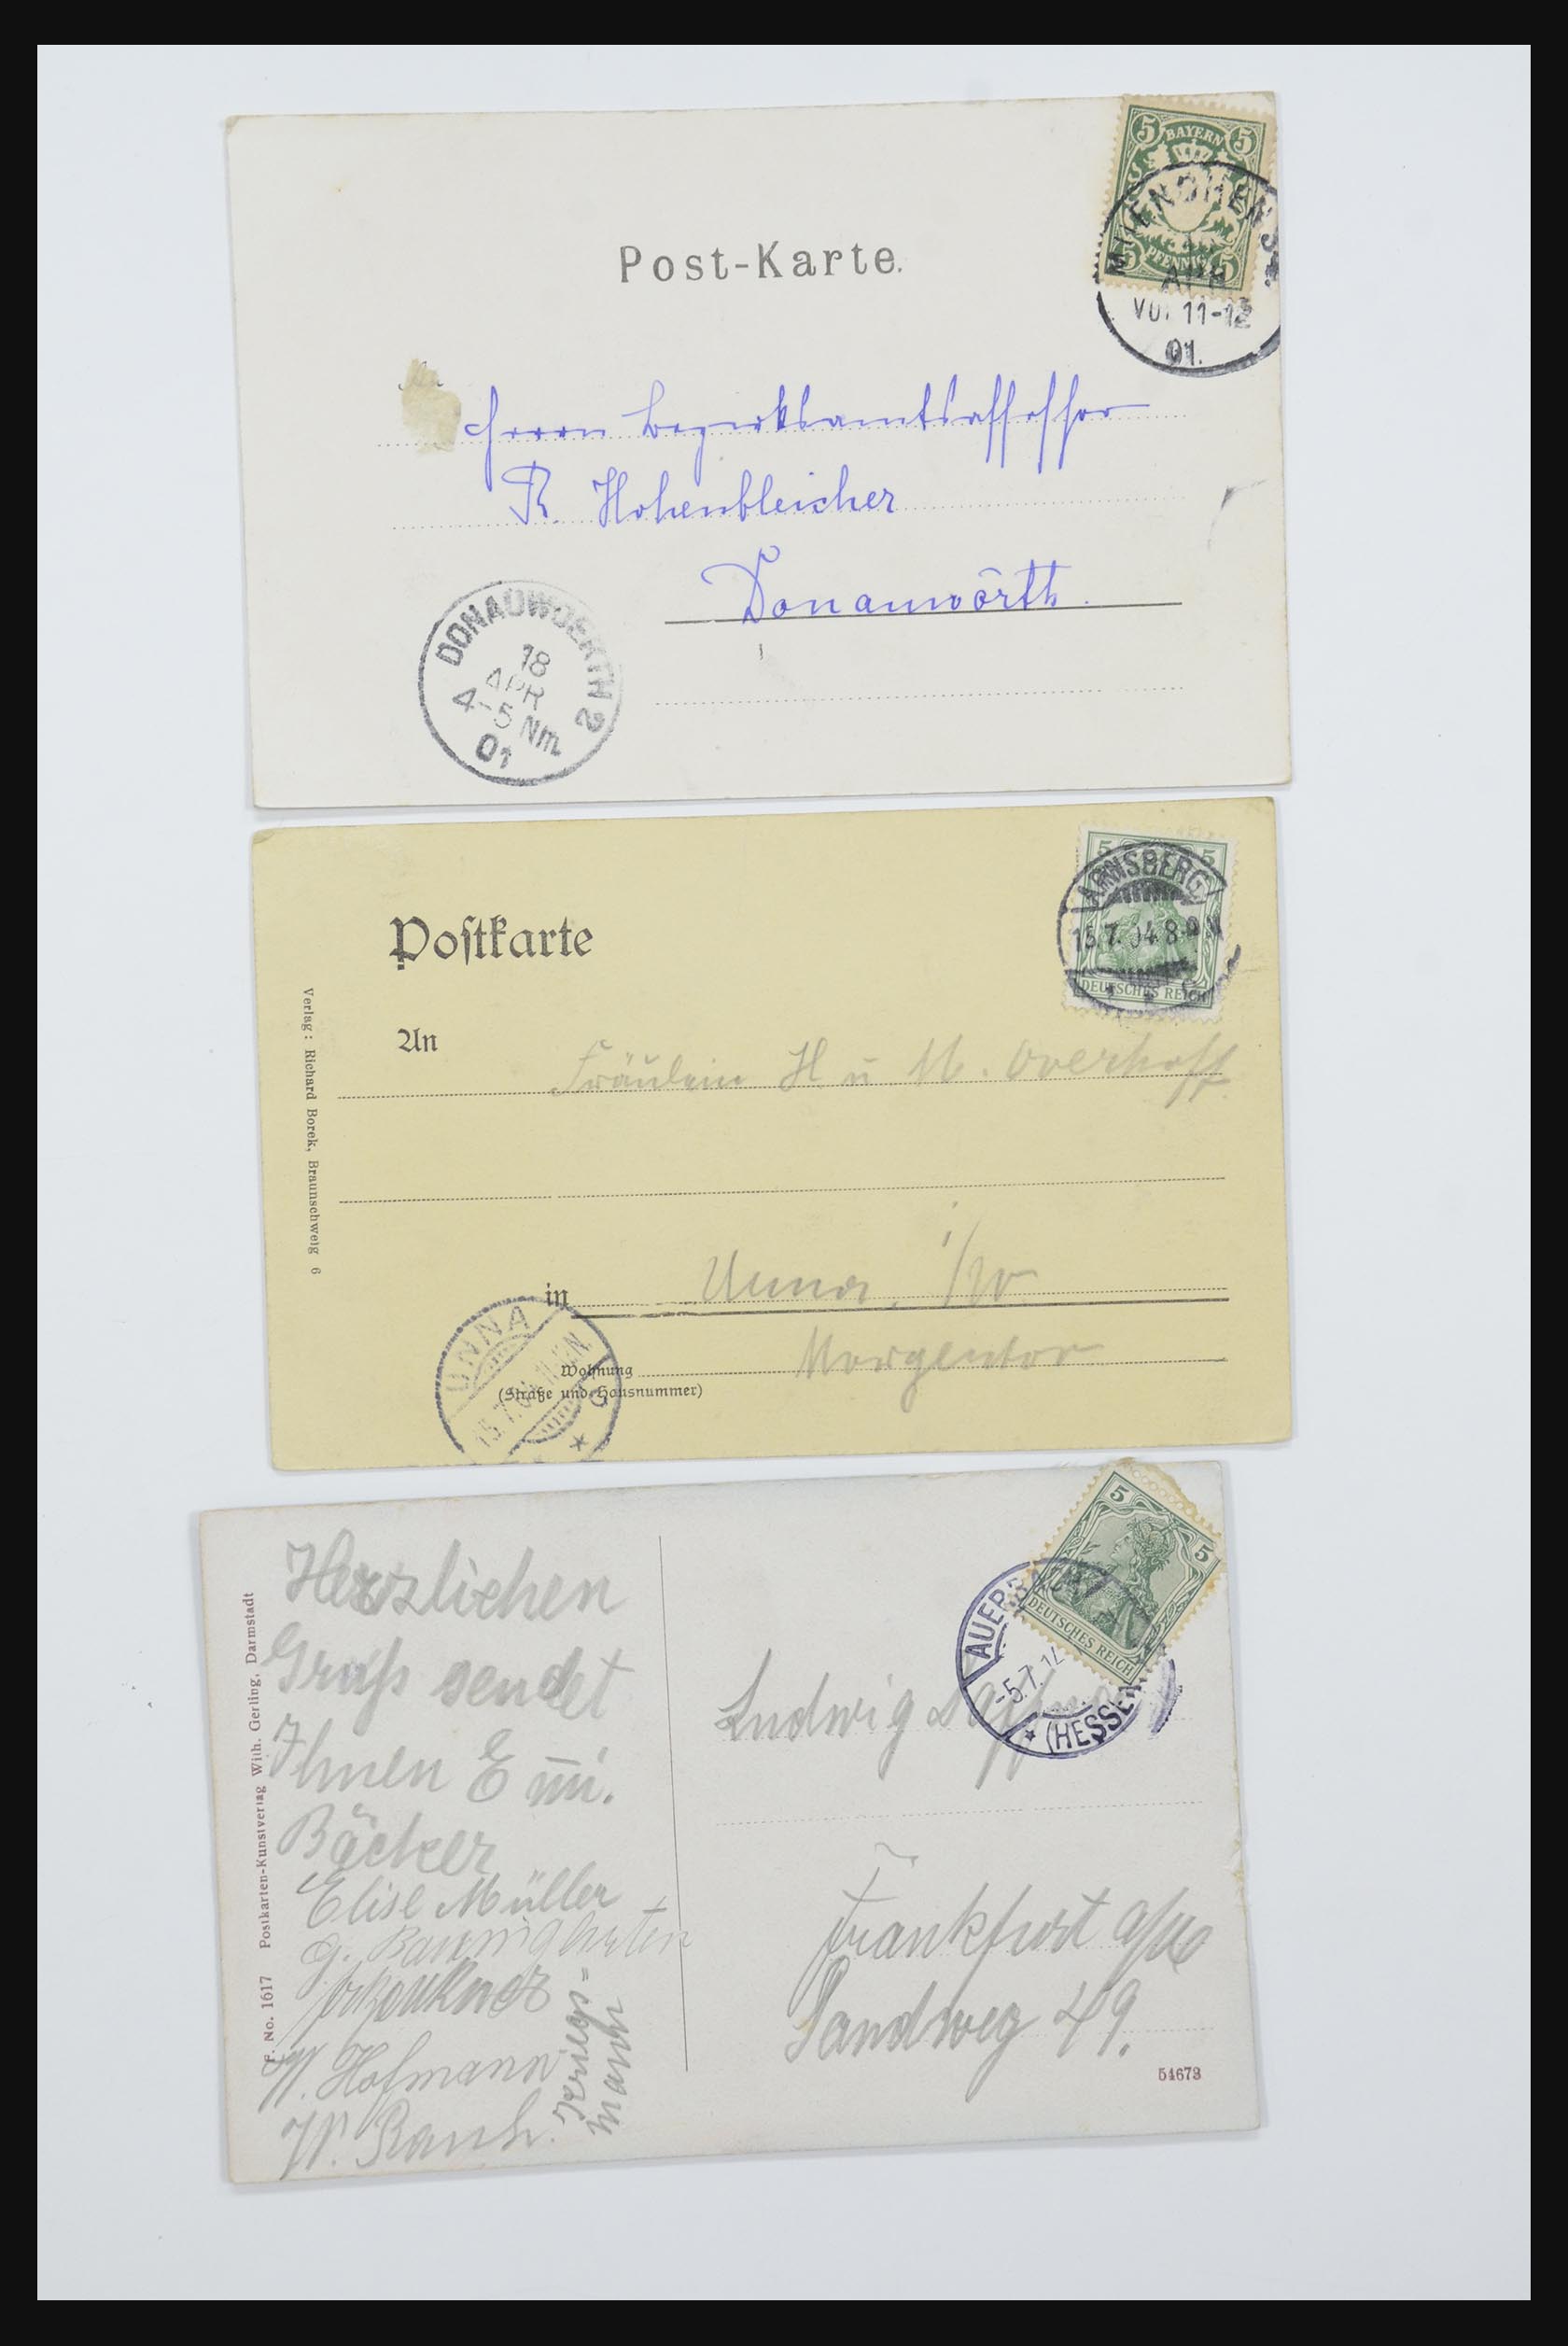 5 BAYERN 5
5 PFENNIG 5
MUENCHEN
APR
Vor 11-12
01.
Post-Karte.
An
Herrn Bezirksamtsassessor
R. Hohenbleicher
Donauwörth.
DONAUWOERTH 2
18
APR
4-5 Nm
01
5 5
DEUTSCHES REICH
ARNSBERG
15.7.04.8-9
Postkarte
An
Fräulein H u M. Overhoff.
in Unna. i/W
Wohnung Morgentor
(Straße und Hausnummer)
UNNA
15.7.04
Verlag: Richard Borek, Braunschweig 6
5 5
DEUTSCHES REICH
AUERBACH
-5.7.12
(HESSEN)
Herzlichen
Gruß sendet
Ihnen
Bäcker
Elise Müller
g. Baumgarten
H. Hofmann
W. Rauh.
Kriegs=
mann
Ludwig
Frankfurt a/M
Sandweg 49.
54673
F. No. 1617 Postkarten-Kunstverlag Wilh. Gerling, Darmstadt